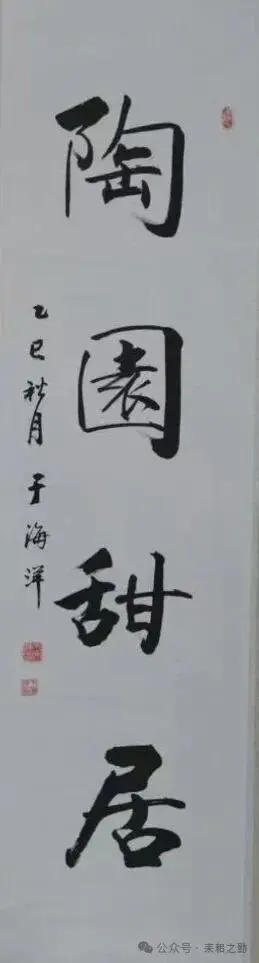 陶園甜居
乙巳秋月于海洋
公众号·耒耜之勤